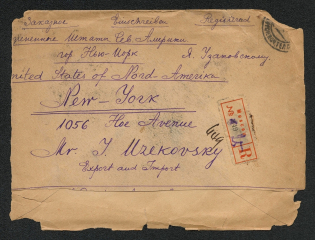 Заказное Einschreiben Registered
Соединенные Штаты Сев Америки
гор Нью-Иорк Я. Узаковскому
United States of Nord-Amerika
New-York
1056 Hoe Avenue
Mr. J. Uzekovsky
Export and Import
R